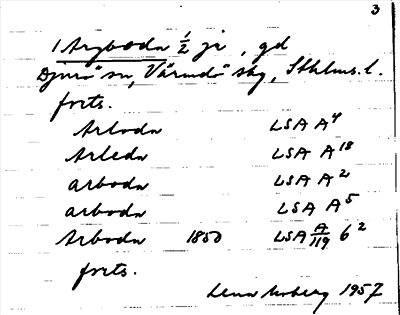 3
1 Argboda ½ je, gd
Djurö sn, Värmdö skg, Sthlms. l.
forts.
Arboda LSA A⁴
Arleda LSA A¹⁸
arboda LSA A²
arboda LSA A⁵
Arboda 1850 LSA A/119 6²
forts.
Lena Moberg 1957